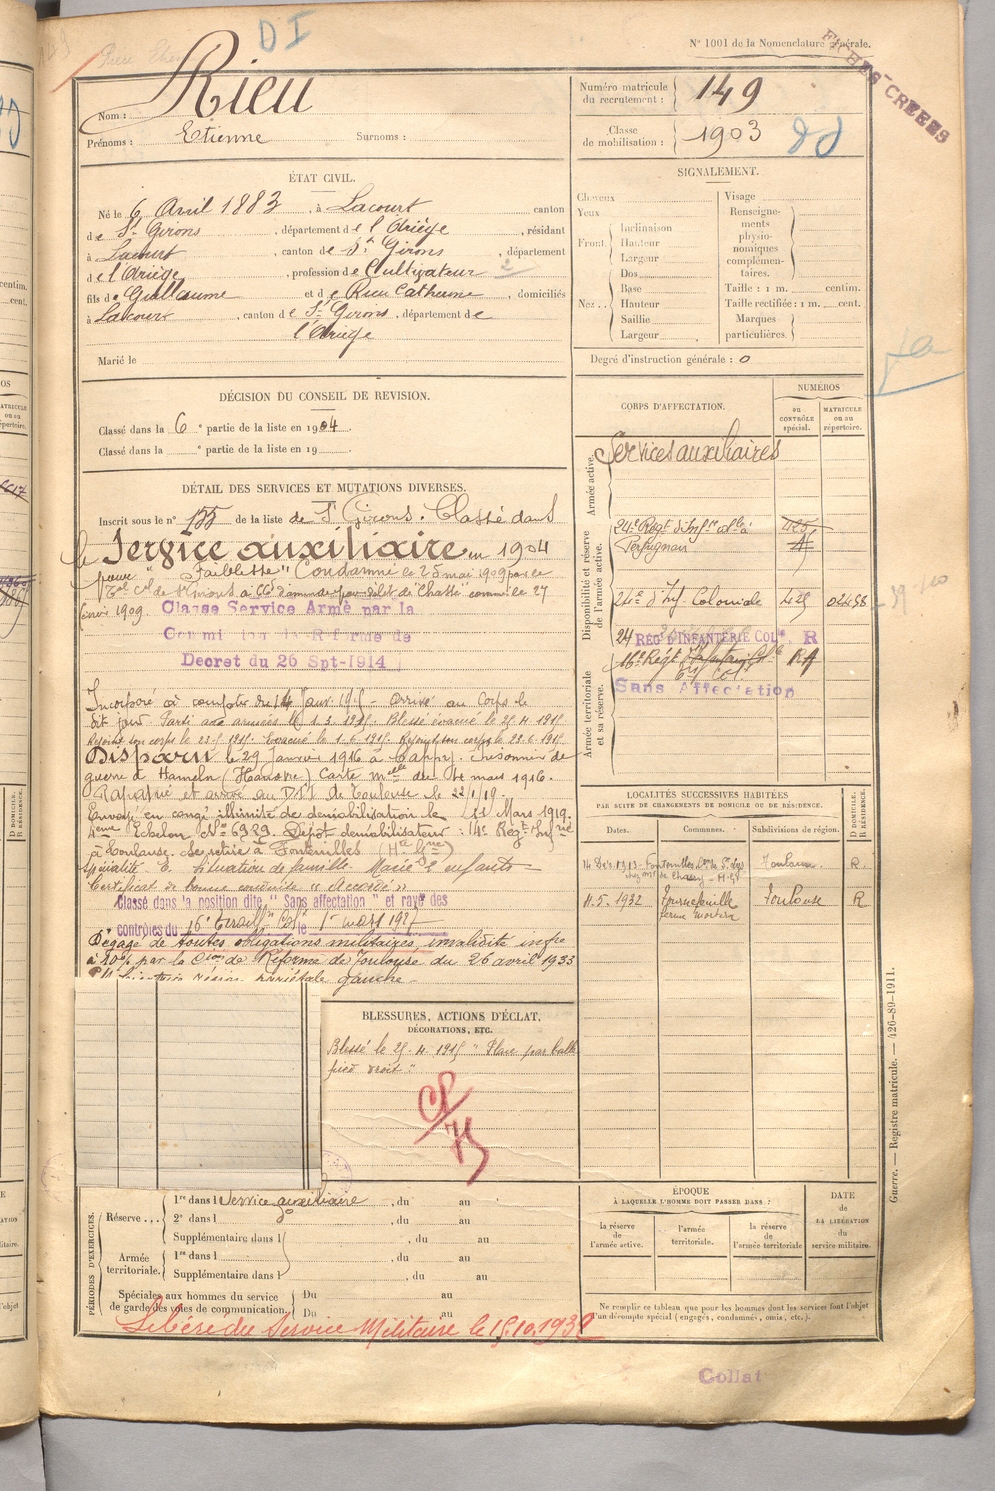 D I
N° 1001 de la Nomenclature générale.
FICHES CREEES
Nom : Rieu
Prénoms : Etienne Surnoms :
Numéro matricule du recrutement : 149
Classe de mobilisation : 1903
ÉTAT CIVIL.
Né le 6 Avril 1883, à Lacourt canton
de St Girons, département de l'Ariège, résidant
à Lacourt, canton de St Girons, département
de l'Ariège, profession de Cultivateur
fils de Guillaume et de Rieu Catherine, domiciliés
à Lacourt, canton de St Girons, département de
l'Ariège
Marié le
SIGNALEMENT.
Cheveux
Yeux
Front
Inclinaison
Hauteur
Largeur
Dos
Nez
Base
Hauteur
Saillie
Largeur
Visage
Renseignements physionomiques complémentaires.
Taille : 1 m. centim.
Taille rectifiée : 1 m. cent.
Marques particulières.
Degré d'instruction générale : 0
DÉCISION DU CONSEIL DE REVISION.
Classé dans la 6e partie de la liste en 1904.
Classé dans la e partie de la liste en 19
DÉTAIL DES SERVICES ET MUTATIONS DIVERSES.
Inscrit sous le n° 155 de la liste de St Girons. Classé dans
le Service auxiliaire en 1904
pour "Faiblesse" Condamné le 25 mai 1909 par le
de St Girons à d'amende pour délit de "Chasse" commis le 27
1909.
Classe Service Armé par la
Commission de Réforme de
Decret du 26 Spt-1914
Incorporé à compter du 14 Janv. 1915 - arrivé au Corps le
dit jour. Parti aux armées le 1.3.1915. Blessé évacué le 25.4.1915.
Rejoint son corps le 22.5.1915. Evacué le 1.6.1915. Rejoint son corps le 22.6.1915.
Disparu le 29 Janvier 1916 à Cappy. Prisonnier de
guerre à Hameln (Hanovre) Carte mars 1916.
Rapatrié et arrivé au D.I. de Toulouse le 22/1/19.
Envoyé en congé illimité de démobilisation le 11 Mars 1919.
4ème Echelon N° 6329. Dépôt démobilisateur : 14e Regt Infrie
à Toulouse. Se retire à Fontenilles (Hte Gne)
Spécialité E. Situation de famille Marié 2 enfants
Certificat de bonne conduite "Accordé"
Classé dans la position dite "Sans affectation" et rayé des
contrôles du 16e Tiraill. Col. le 1er mars 1927
Dégagé de toutes obligations militaires, invalidité infre
à 10% par la Cion de Réforme de Toulouse du 26 avril 1933
région pariétale gauche
CORPS D'AFFECTATION.
NUMÉROS
au contrôle spécial.
matricule ou au répertoire.
Armée active.
Services auxiliaires
Disponibilité et réserve de l'armée active.
24e Régt d'Infrie Cole à
Perpignan
24e d'Inf. Coloniale 425
24 REG D'INFANTERIE COLe R
Armée territoriale et sa réserve.
16e Régt
Sans Affectation
LOCALITÉS SUCCESSIVES HABITÉES
PAR SUITE DE CHANGEMENTS DE DOMICILE OU DE RÉSIDENCE.
Dates. Communes. Subdivisions de région. D DOMICILE. R RÉSIDENCE.
14 Déc. 1913 Fontenilles Toulouse R.
11.5.1932 Tournefeuille Toulouse R
BLESSURES, ACTIONS D'ÉCLAT,
DÉCORATIONS, ETC.
Blessé le 25.4.1915 "Plaie par balle
pied droit."
PÉRIODES D'EXERCICES.
Réserve...
1re dans l Service auxiliaire, du au
2e dans l , du au
Supplémentaire dans l , du au
Armée territoriale.
1re dans l , du au
Supplémentaire dans l , du au
Spéciales aux hommes du service de garde des voies de communication. Du au
Du au
Libéré du Service Militaire le 15.10.1932
ÉPOQUE
À LAQUELLE L'HOMME DOIT PASSER DANS :
la réserve de l'armée active.
l'armée territoriale.
la réserve de l'armée territoriale
DATE de LA LIBÉRATION du service militaire.
Ne remplir ce tableau que pour les hommes dont les services font l'objet
d'un décompte spécial (engagés, condamnés, omis, etc.).
Guerre. — Registre matricule. — 426-89-1911.
Collat